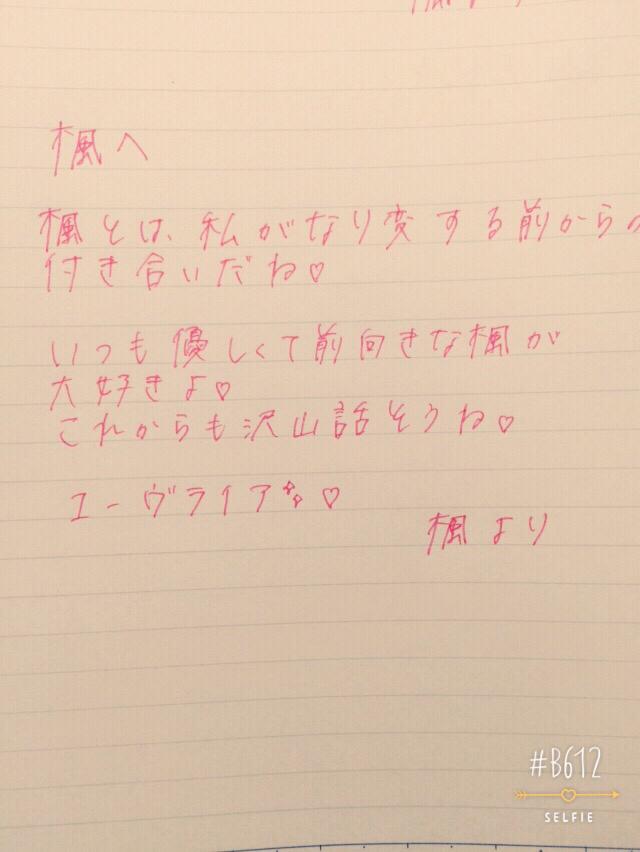 楓へ
楓とは、私がなり変する前からの
付き合いだね♡
いつも優しくて前向きな楓が
大好きよ♡
これからも沢山話そうね♡
ユーヴライア✨♡
楓より
#B612
SELFIE